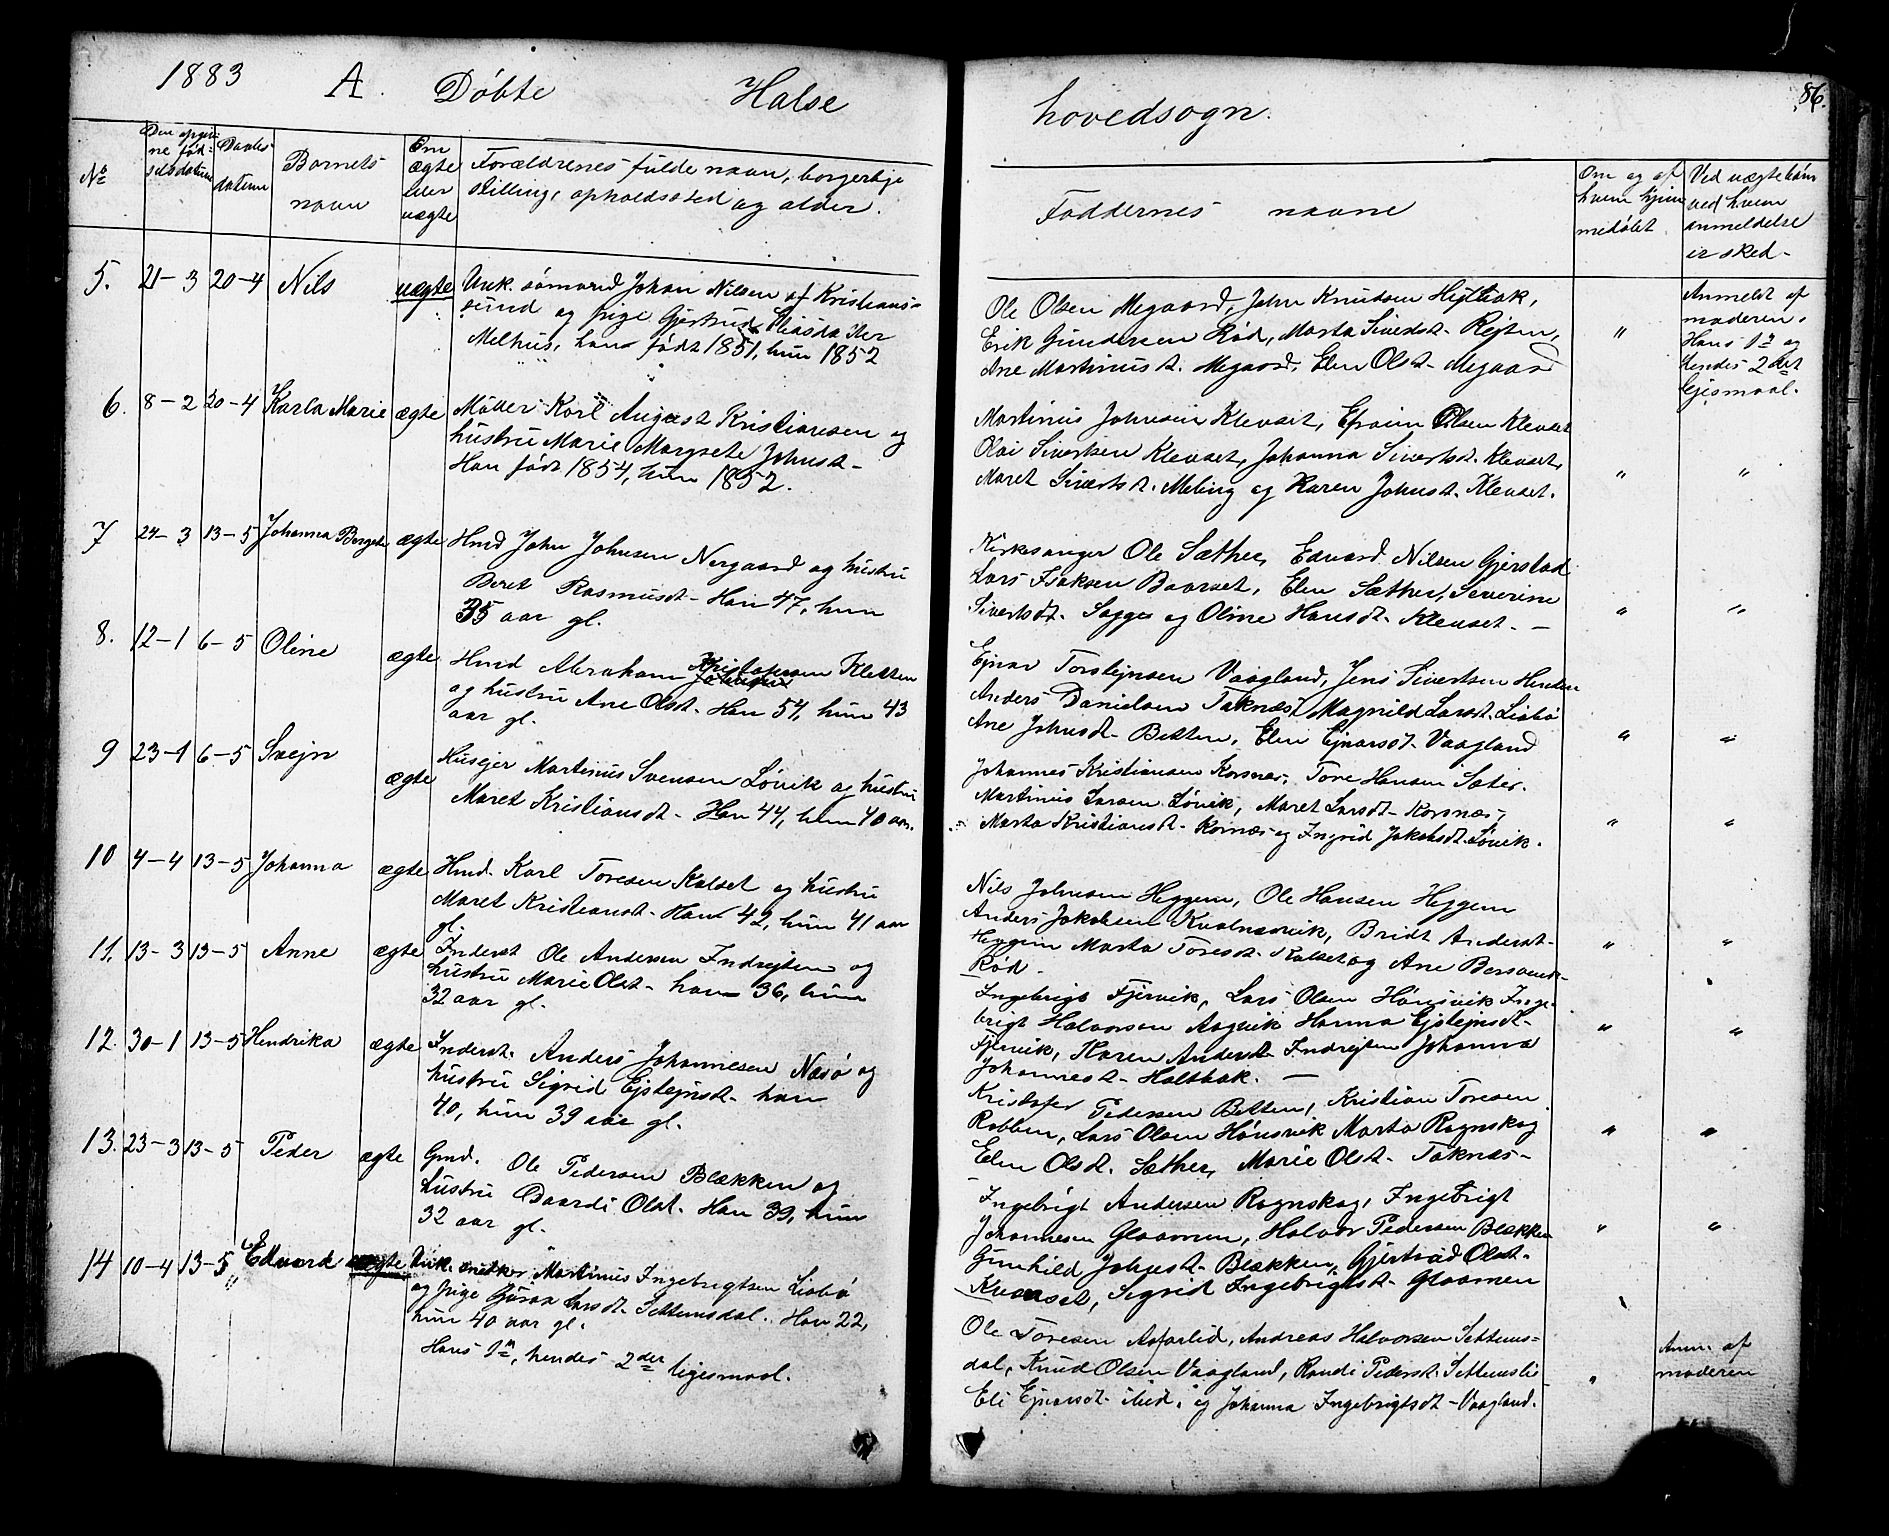 1883 A. Döbte Halse
hovedsogn.
86.
No
Den opgiv-
ne föd-
selsdatum
Daabs-
datum
Barnets
navn
Om
ægte
eller
uægte
Forældrenes fulde navn, borgerlige
stilling, opholdssted og alder.
Faddernes navne
Om og af
hvem hjem-
medöbt
Ved uægte börn
ved hvem
anmeldelse
er sked-
5. 21-3 20-4 Nils uægte Unk. sömand Johan Nilsen af Kristians-
sund og pige Gjertrud Eliasdatter
Melhus, han födt 1851, hun 1852
Ole Olsen Megaard, John Knudsen
Erik Gundersen Röd, Marta Sivertsdt. Rejten,
Ane Martinusdt. Megaard, Elen Olsdt. Megaard
"
Anmeldt af
moderen.
Hans 1ste og
hendes 2det
lejermaal.
6. 8-2 20-4 Karla Marie ægte Möller Karl August Kristiansen og
hustru Marie Margrete Johnsdt-
Han födt 1854, hun 1852.
Martinus Johnsen Klevset, Efraim Olsen Klevset
Olai Sivertsen Klevset, Johanna Sivertsdt. Klevset,
Maret Sivertsdt. Meling og Karen Johnsdt. Klevset.
" "
7 24-3 13-5 Johanna Bergete ægte Hmd John Johnsen Nergaard og hustru
Beret Rasmusdt- Han 47, hun
35 aar gl.
Kirkesanger Ole Sæther, Edvard Nilsen Gjerstad
Lars Isaksen Baarset, Elen Sæther, Severine
Sivertsdt. Sagge og Oline Hansdt. Klevset. -
" "
8. 12-1 6-5 Oline ægte Hmd Abraham Kristofersen Kletten
og hustru Ane Olsdt. Han 54, hun 43
aar gl.
Ejnar Torstejnsen Vaagland, Jens Sivertsen Henden
Anders Danielsen Taknæs, Magnild Larsdt. Liabö
Ane Johnsdt- Betten, Elen Ejnarsdt- Vaagland
" "
9 23-1 6-5 Svejn ægte Husejer Martinus Svensen Lövik og hustru
Maret Kristiansdt- Han 44, hun 40 aar.
Johannes Kristiansen Korsnæs, Tore Hansen Sæter.
Martinus Larsen Lövik, Maret Larsdt- Korsnæs,
Marta Kristiansdt- Korsnæs og Ingrid Jakobsdt. Lövik.
" "
10 4-4 13-5 Johanna ægte Hmd. Karl Toresen Kalset og hustru
Maret Kristiansdt- Han 42, hun 41 aar
gl.
Nils Johnsen Heggem, Ole Hansen Heggem
Anders Jakobsen Kvalnesvik, Bridt Andersdt-
Heggem Marta Toresdt. Kalset og Ane
Röd.
" "
11. 13-3 13-5 Anne ægte Inderst Ole Andersen Indrejten og
hustru Marie Olsdt- han 36, hun
32 aar gl.
Ingebrigt Fjervik, Lars Olsen Hönsvik Inge-
brigt Halvorsen Aagvik Hanna Ejstejnsdt-
Fjervik, Karen Andersdt- Indrejten Johanna
Johannesdt- Haltbak. -
" "
12. 30-1 13-5 Hendrika ægte Inderst. Anders Johannesen Nasö og
hustru Sigrid Ejstejnsdt- han
40, hun 39 aar gl.
Kristofer Pedersen Betten, Kristian Toresen
Robben, Lars Olsen Hönsvik Marta Rognskog
Elen Olsdt. Sæther, Marie Olsdt- Taknæs-
" "
13. 23-3 13-5 Peder ægte Gmd. Ole Pedersen Blækken og
hustru Baardi Olsdt. Han 39, hun
32 aar gl.
Ingebrigt Andersen Rognskog, Ingebrigt
Johannesen Glaamen, Halvor Pedersen Blækken
Gunhild Johnsdt- Blækken, Gjertrud Olsdt-
Kvanset, Sigrid Ingebrigtsdt- Glaamen
" "
14 10-4 13-5 Edvard uægte Unk. snedker Martinus Ingebrigtsen Liabö
og pige Guroa Larsdt- Settemsdal. Han 22,
hun 40 aar gl.
Hans 1ste, hendes 2det lejermaal.
Ole Toresen Aasarlid, Andreas Halvorsen Settems-
dal, Knud Olsen Vaagland, Randi Pedersdt. Settemslid
Eli Ejnarsdt- ibid. og Johanna Ingebrigtsdt- Vaagland.
"
Anm. af
moderen